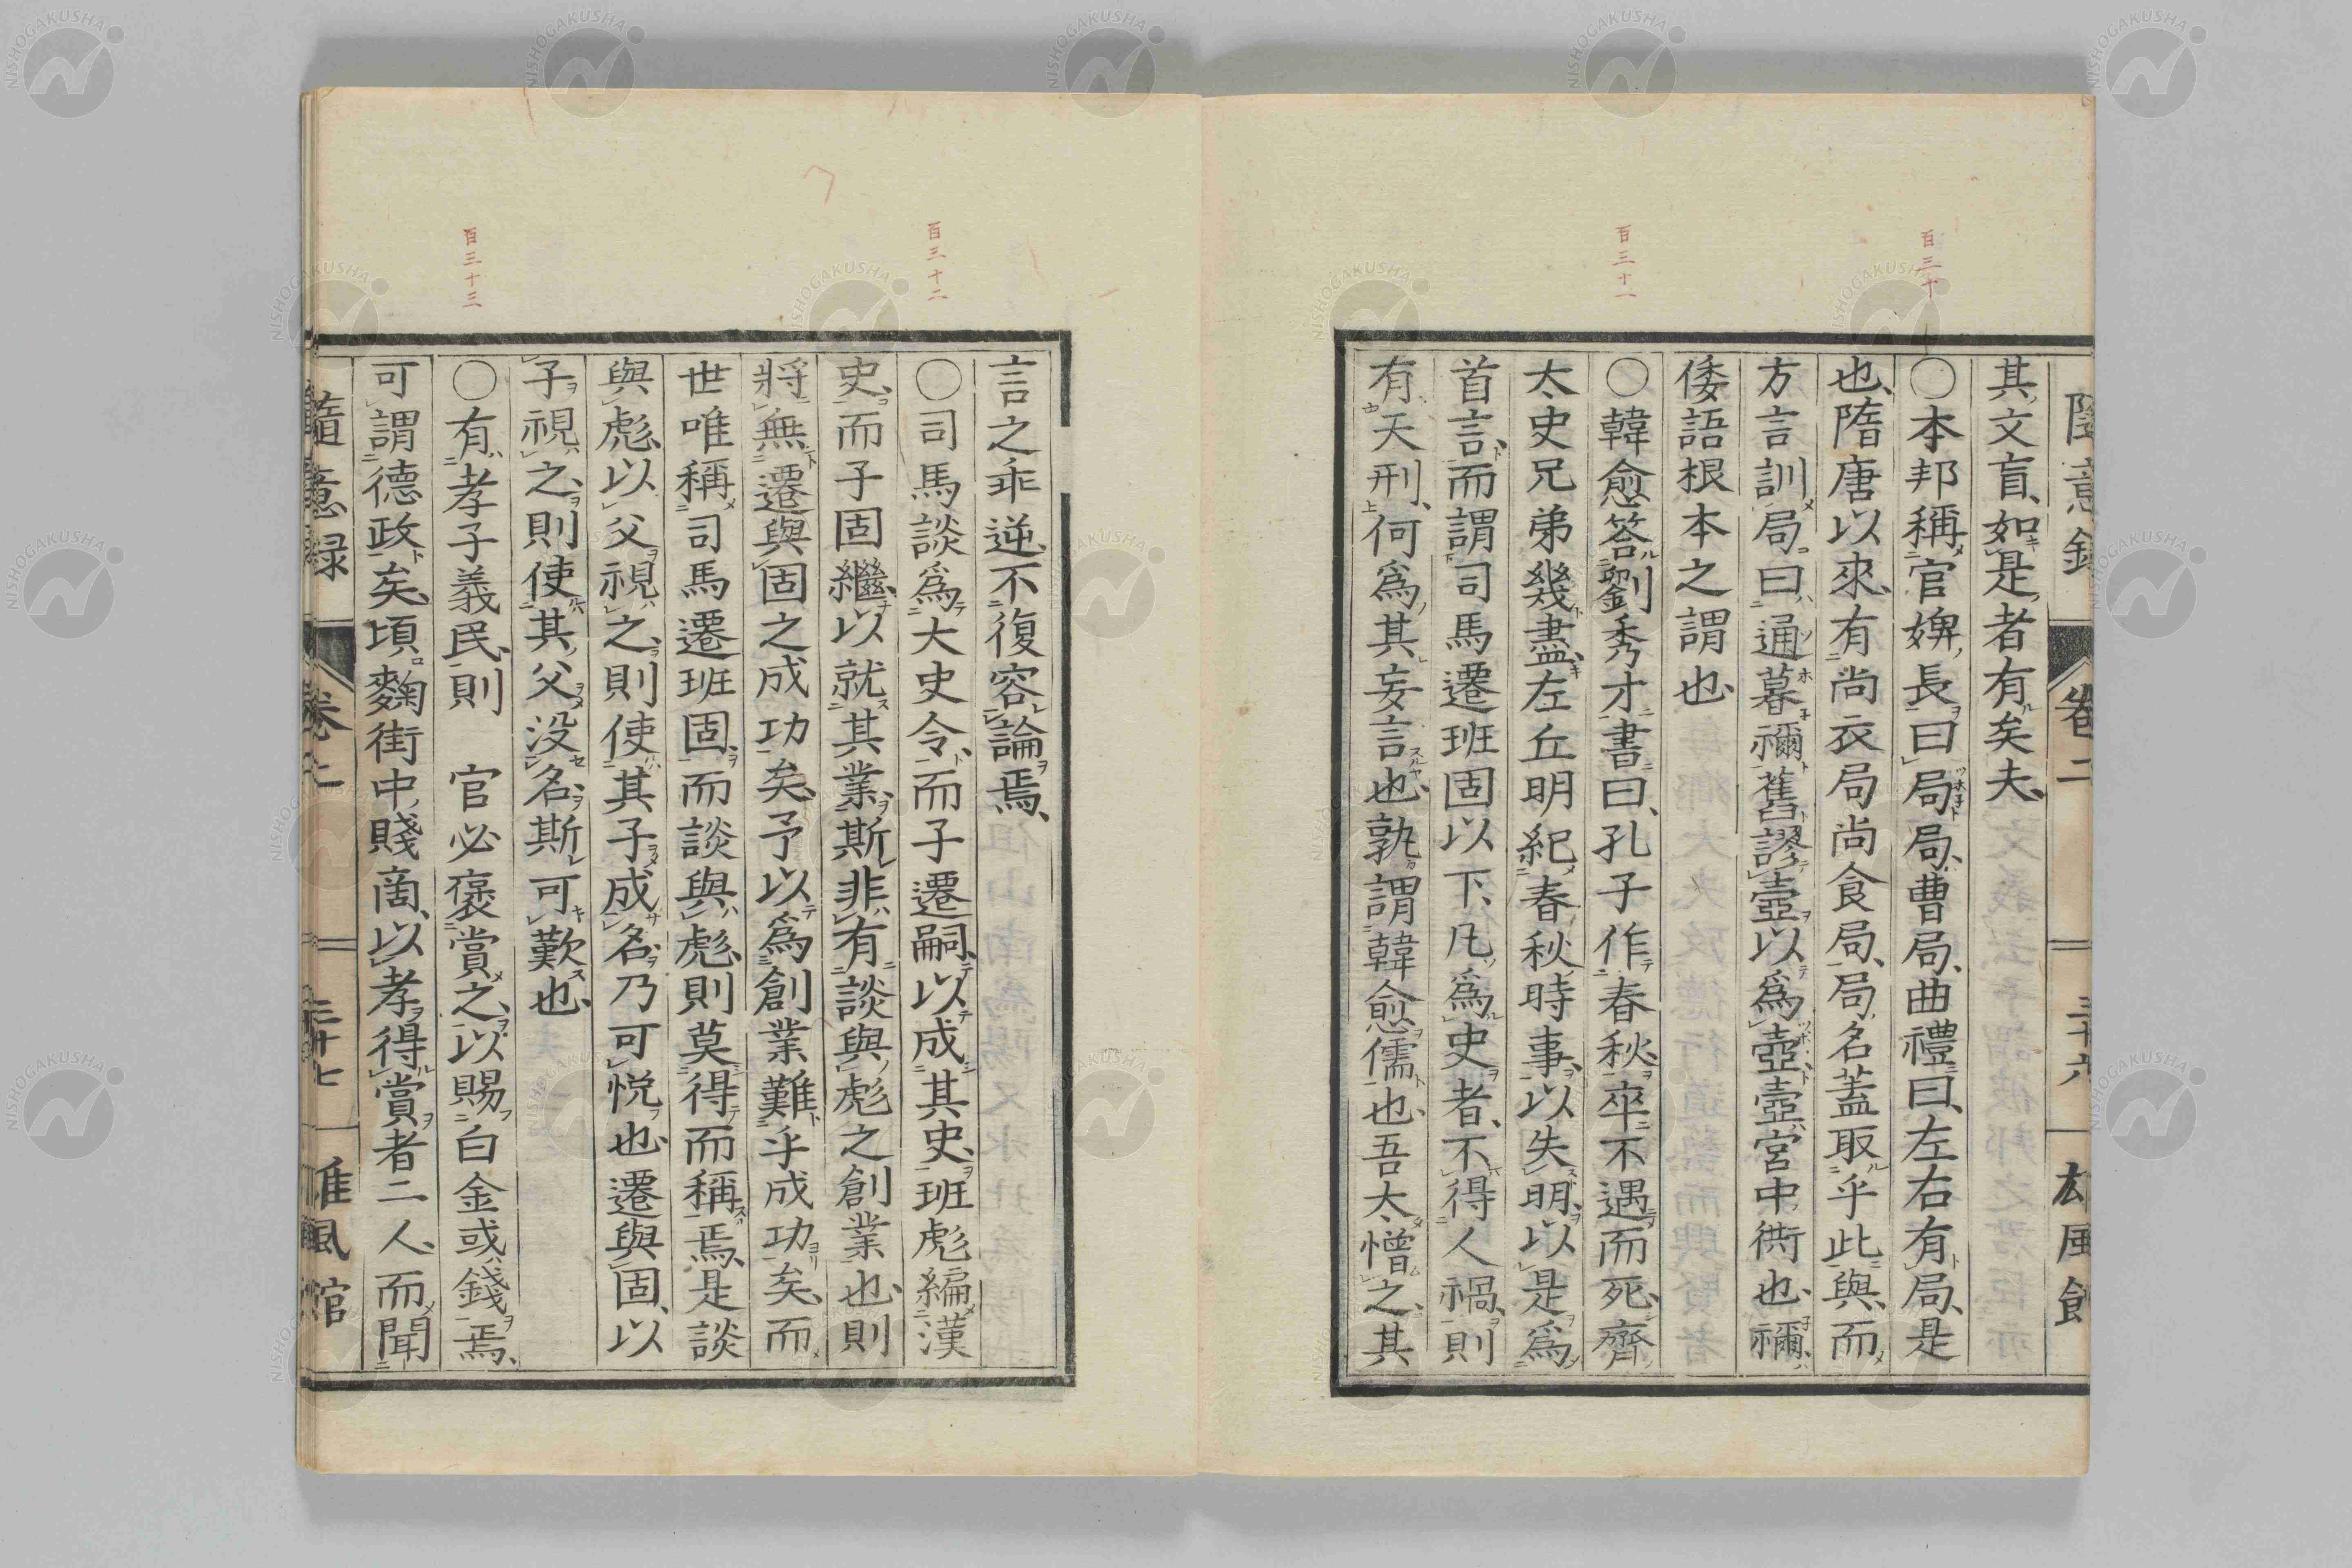 隨意錄 卷二 三十六 雄風館
其文盲如是者有矣夫
百三十
〇本邦稱官婢長曰局局曹局曲禮曰左右有局是
也隋唐以來有尚衣局尚食局局名蓋取乎此與而
方言訓局曰通暮禰舊謬壼以爲壺壼宮中衖也禰
倭語根本之謂也
百三十一
〇韓愈答劉秀才書曰孔子作春秋卒不遇而死齊
太史兄弟幾盡左丘明紀春秋時事以失明以是爲
首言而謂司馬遷班固以下凡爲史者不得人禍則
有天刑何爲其妄言也孰謂韓愈儒也吾大憎之其
言之乖逆不復容論焉
百三十二
〇司馬談爲大史令而子遷嗣以成其史班彪編漢
史而子固繼以就其業斯非有談與彪之創業也則
將無遷與固之成功矣予以爲創業難乎成功矣而
世唯稱司馬遷班固而談與彪則莫得而稱焉是談
與彪以父視之則使其子成名乃可悅也遷與固以
子視之則使其父没名斯可歎也
百三十三
〇有孝子義民則　官必褒賞之以賜白金或錢焉
可謂德政矣頃麴街中賤啇以孝得賞者二人而聞
隨意錄 卷二 三十七 雄風館
NISHOGAKUSHA